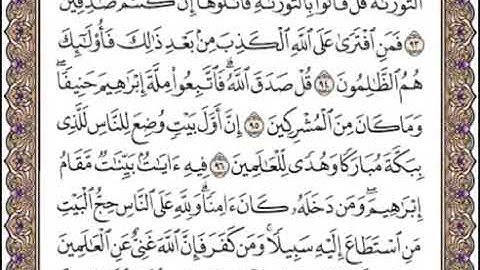 التَّوْرَىٰةُ قُلْ فَأْتُوا۟ بِالتَّوْرَىٰةِ فَاتْلُوهَآ إِن كُنتُمْ صَٰدِقِينَ
٩٣ فَمَنِ افْتَرَىٰ عَلَى اللَّهِ الْكَذِبَ مِنۢ بَعْدِ ذَٰلِكَ فَأُو۟لَٰٓئِكَ
هُمُ الظَّٰلِمُونَ ٩٤ قُلْ صَدَقَ اللَّهُ ۗ فَاتَّبِعُوا۟ مِلَّةَ إِبْرَٰهِيمَ حَنِيفًا ۖ
وَمَا كَانَ مِنَ الْمُشْرِكِينَ ٩٥ إِنَّ أَوَّلَ بَيْتٍ وُضِعَ لِلنَّاسِ لَلَّذِى
بِبَكَّةَ مُبَارَكًا وَهُدًى لِّلْعَٰلَمِينَ ٩٦ فِيهِ ءَايَٰتٌۢ بَيِّنَٰتٌ مَّقَامُ
إِبْرَٰهِيمَ ۖ وَمَن دَخَلَهُۥ كَانَ ءَامِنًا ۗ وَلِلَّهِ عَلَى النَّاسِ حِجُّ الْبَيْتِ
مَنِ اسْتَطَاعَ إِلَيْهِ سَبِيلًا ۚ وَمَن كَفَرَ فَإِنَّ اللَّهَ غَنِىٌّ عَنِ الْعَٰلَمِينَ